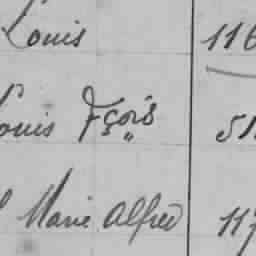 Louis 116
Louis Fçois 51
Marie Alfred 117